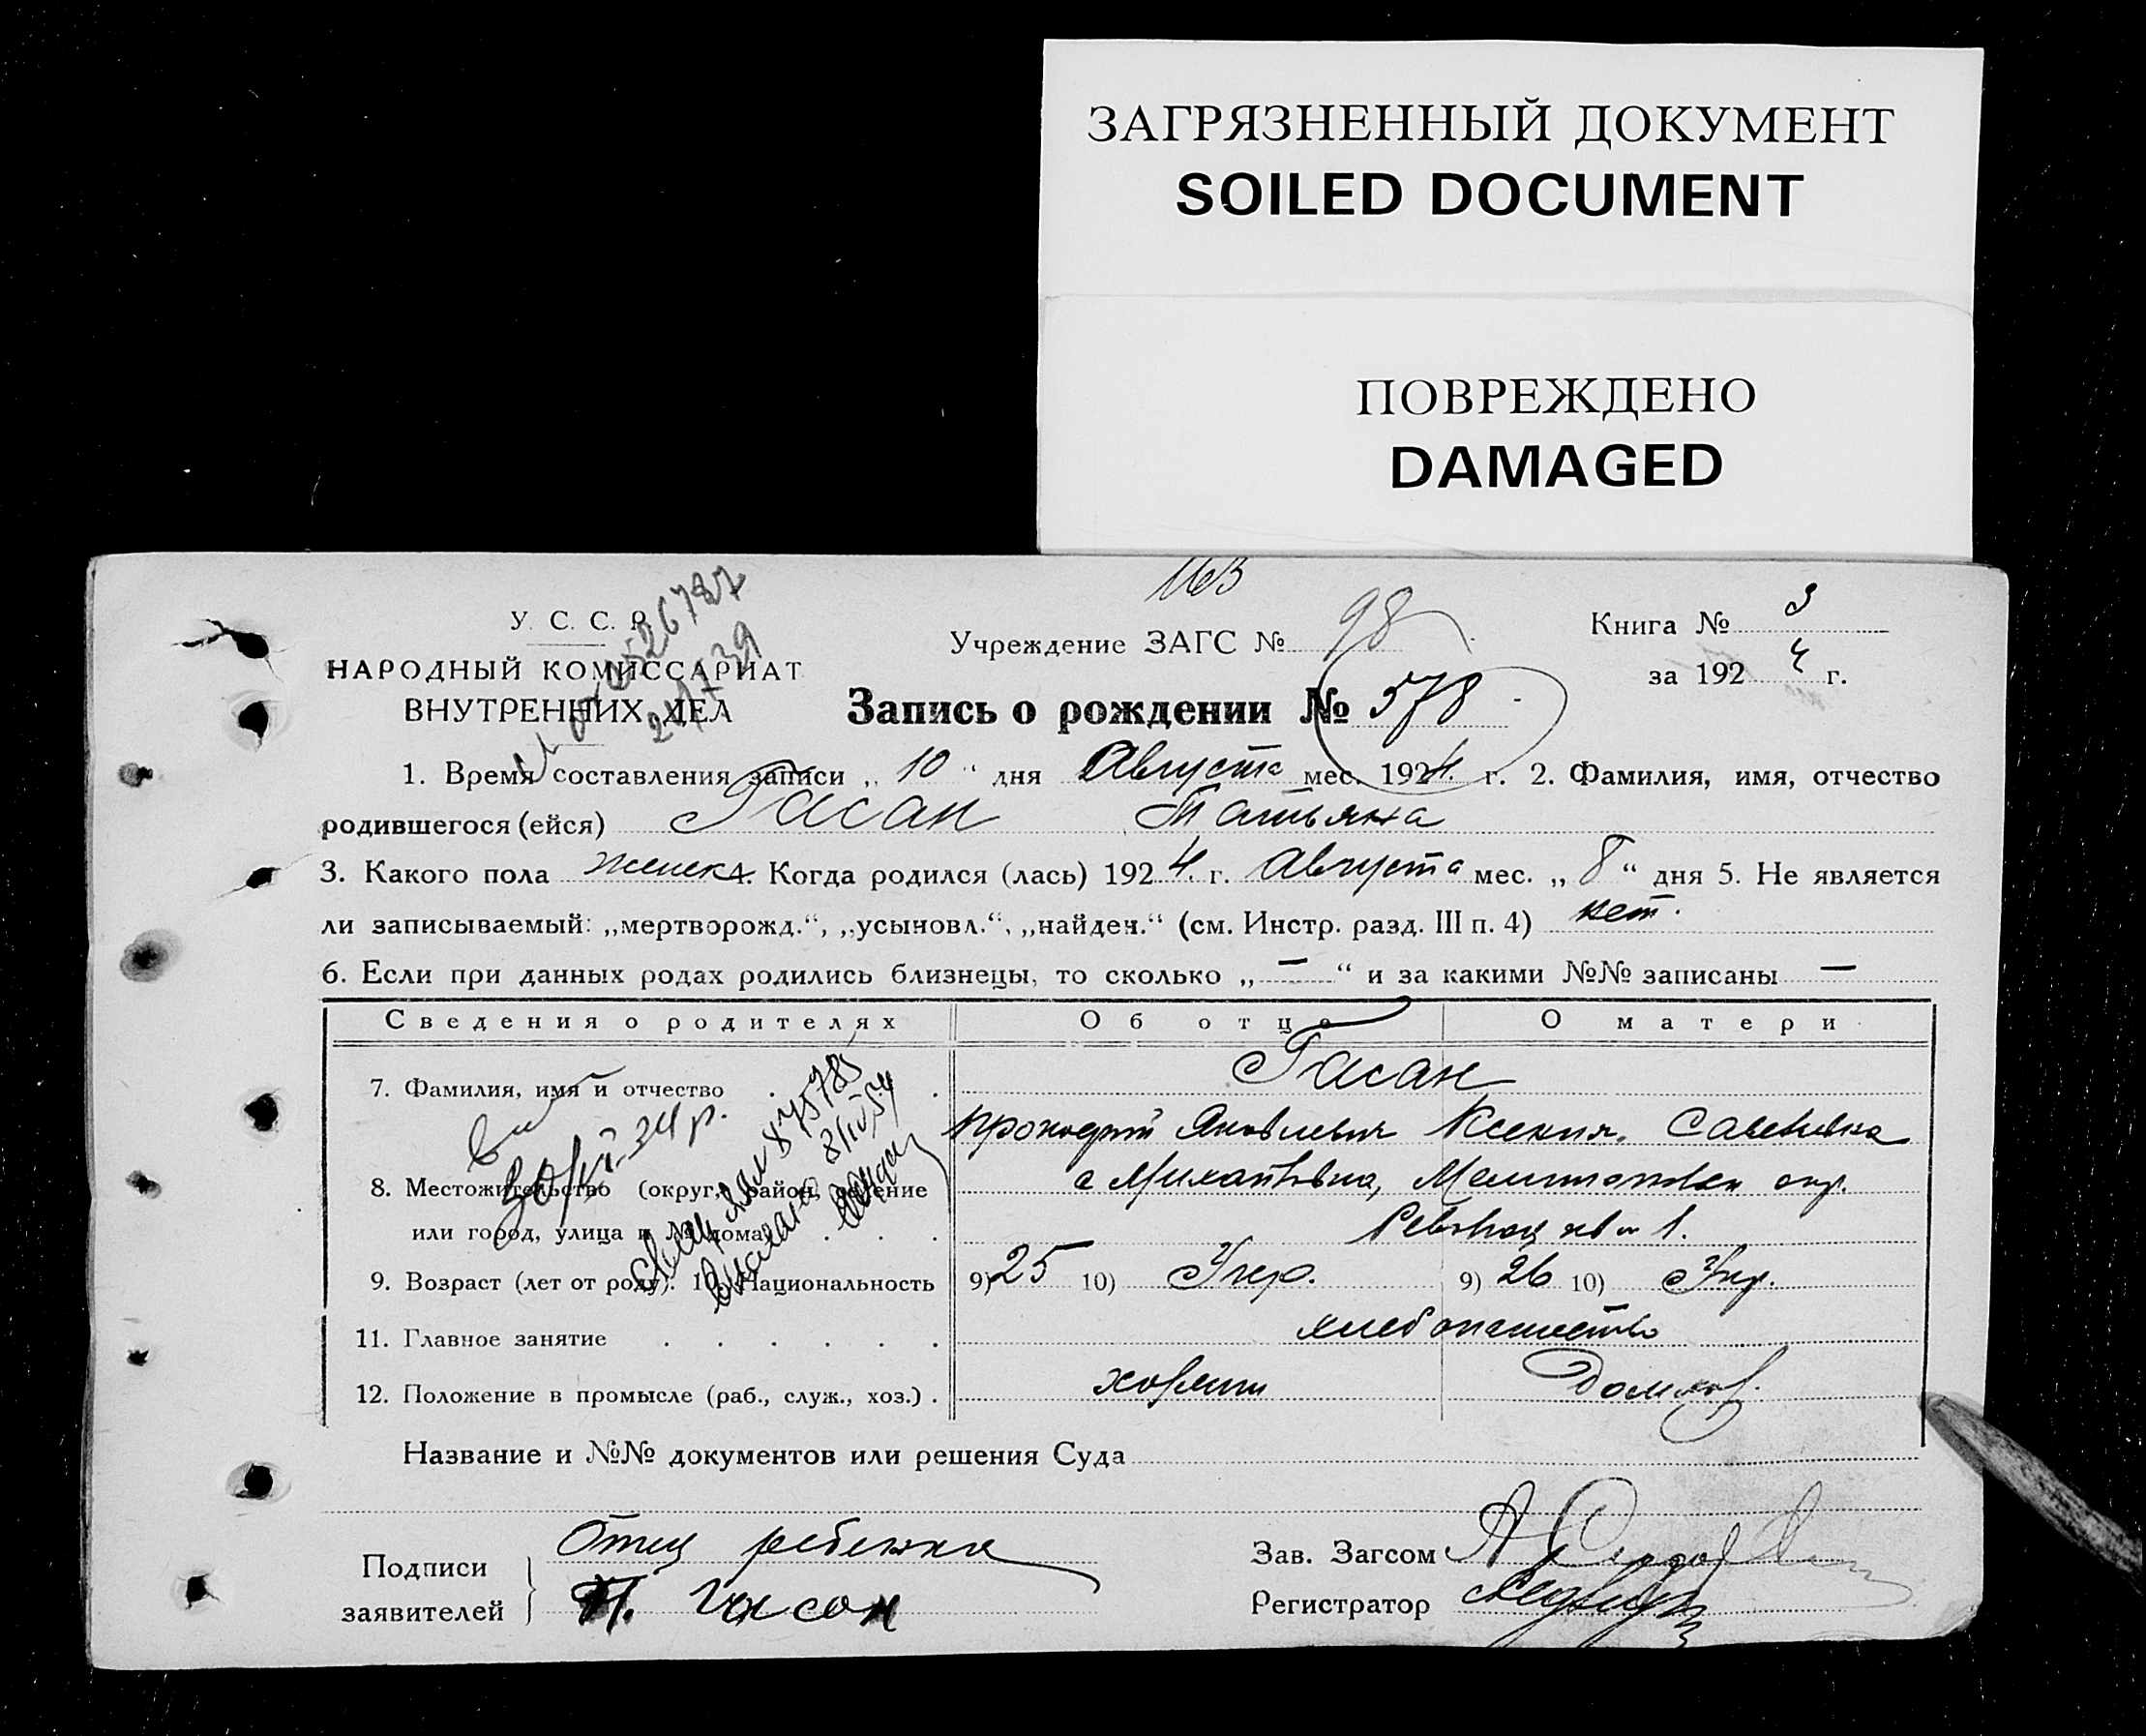 ЗАГРЯЗНЕННЫЙ ДОКУМЕНТ
SOILED DOCUMENT
ПОВРЕЖДЕНО
DAMAGED
163
У. С. С. Р.
НАРОДНЫЙ КОМИССАРИАТ
ВНУТРЕННИХ ДЕЛ
Учреждение ЗАГС № 98
Книга № 3
за 192 4 г.
Запись о рождении № 578
1. Время составления записи „ 10 “ дня Августа мес. 1924. г. 2. Фамилия, имя, отчество
родившегося (ейся) Гасан Татьяна
3. Какого пола женск 4. Когда родился (лась) 192 4. г. Августа мес. „ 8 “ дня 5. Не является
ли записываемый: „мертворожд.“, „усыновл.“, „найден.“ (см. Инстр. разд. III п. 4) нет.
6. Если при данных родах родились близнецы, то сколько „ — “ и за какими №№ записаны —
Сведения о родителях Об отце О матери
7. Фамилия, имя и отчество Гасан
Прокофий Яковлевич Ксения Савельевна
8. Местожительство (округ, район, селение
с Михайловка, Мелитопольск окр.
или город, улица и № дома)
9. Возраст (лет от роду). 10. Национальность 9) 25 10) Укр. 9) 26 10) Укр.
11. Главное занятие хлебопашество
12. Положение в промысле (раб., служ., хоз.) . хозяин Домхоз.
Название и №№ документов или решения Суда
Подписи заявителей Отец ребенка
П. Гасан
Зав. Загсом
Регистратор